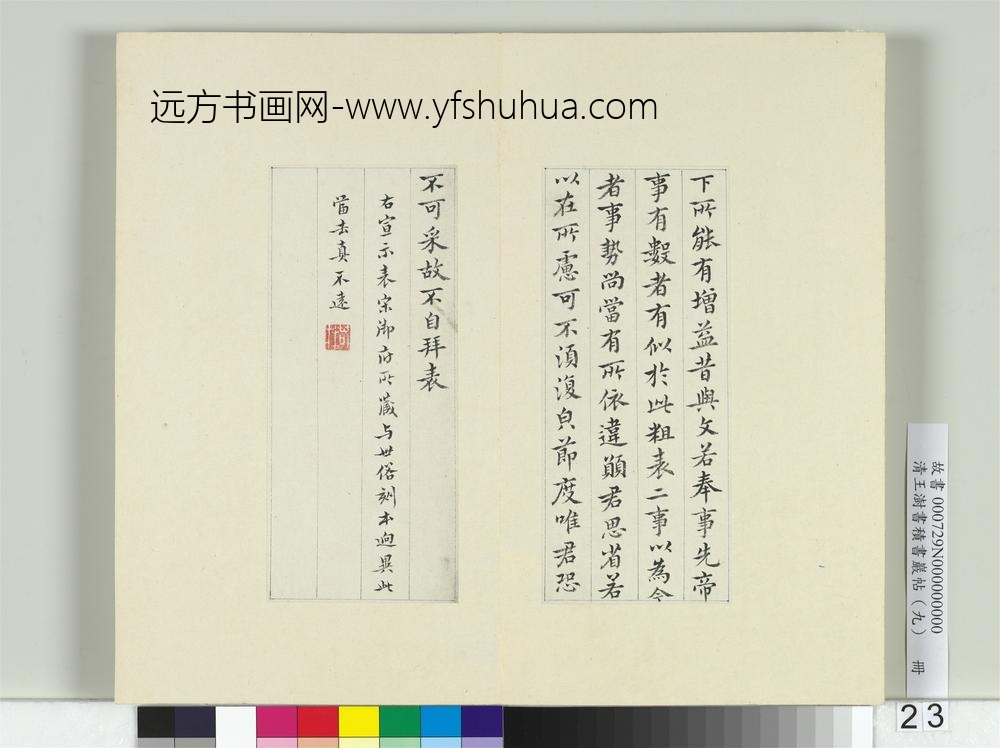 远方书画网-www.yfshuhua.com
下所能有增益昔與文若奉事先帝
事有數者有似於此粗表二事以為今
者事勢尚當有所依違願君思省若
以在所慮可不須復皃節度唯君恐
不可采故不自拜表
右宣示表宋御府所藏与世俗刻本迥異此
當去真不遠
故書 000729N000000000
清王澍書積書巖帖（九） 冊
23